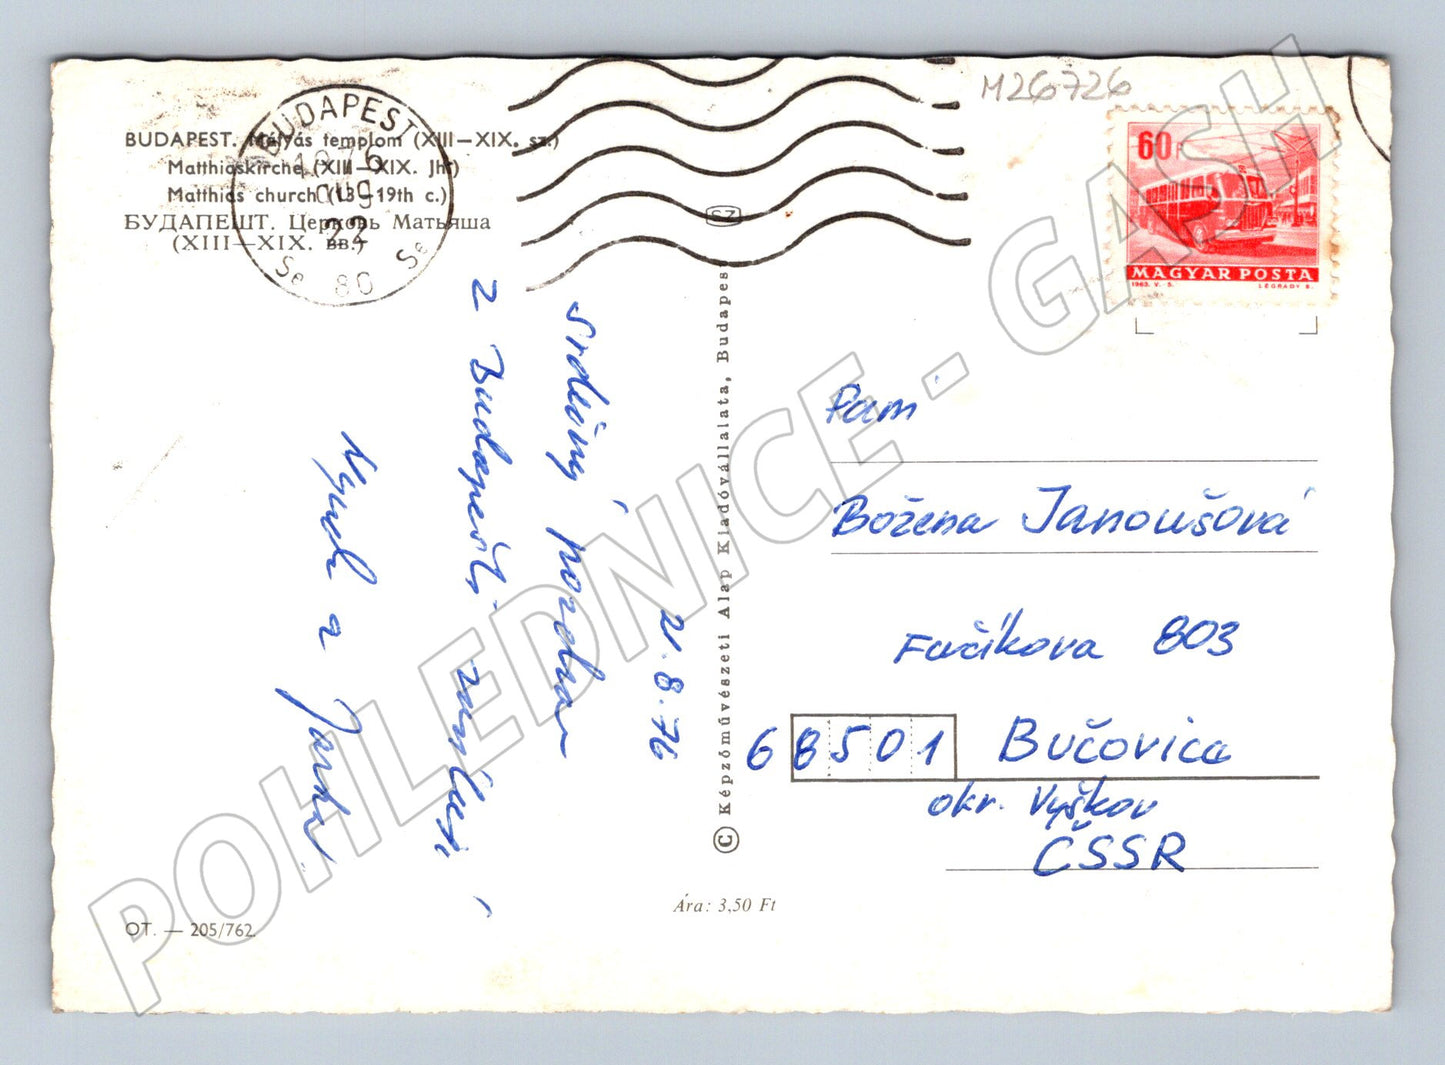 M26726
BUDAPEST. Mátyás templom (XIII—XIX. sz.)
Matthiaskirche (XIII—XIX. Jh.)
Matthias church (13—19th c.)
БУДАПЕШТ. Церковь Матьяша
(XIII—XIX. вв.)
BUDAPEST
1976
AUG
22
Se 80 Se
SZ
60 f
MAGYAR POSTA
1963. V. 5. LÉGRÁDY S.
Srdečný pozdrav
z Budapešti zasílají
a Jarka
21.8.76
© Képzőművészeti Alap Kiadóvállalata, Budapest
Pam
Božena Janoušová
Fučíkova 803
68501 Bučovice
okr. Vyškov
ČSSR
Ára: 3,50 Ft
OT. — 205/762
POHLEDNICE - GASH